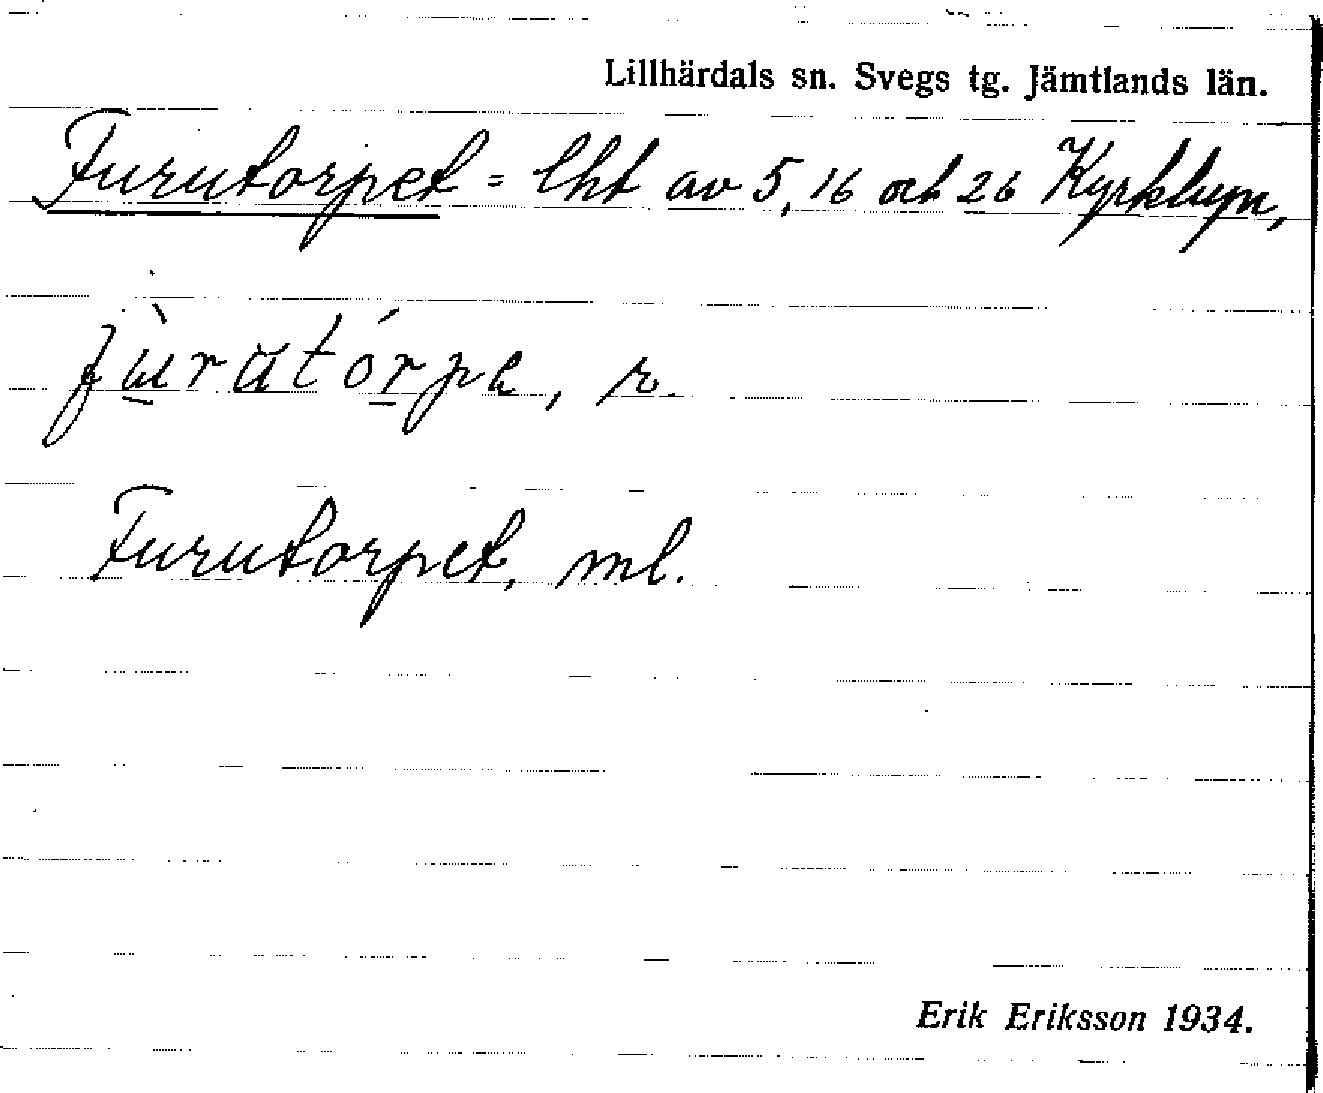 Lillhärdals sn. Svegs tg. Jämtlands län.
Furutorpet = lht av 5, 16 och 26 Kyrkbyn,
fu̠̇̀rató̠rpe, r.
Furutorpet, ml.
Erik Eriksson 1934.